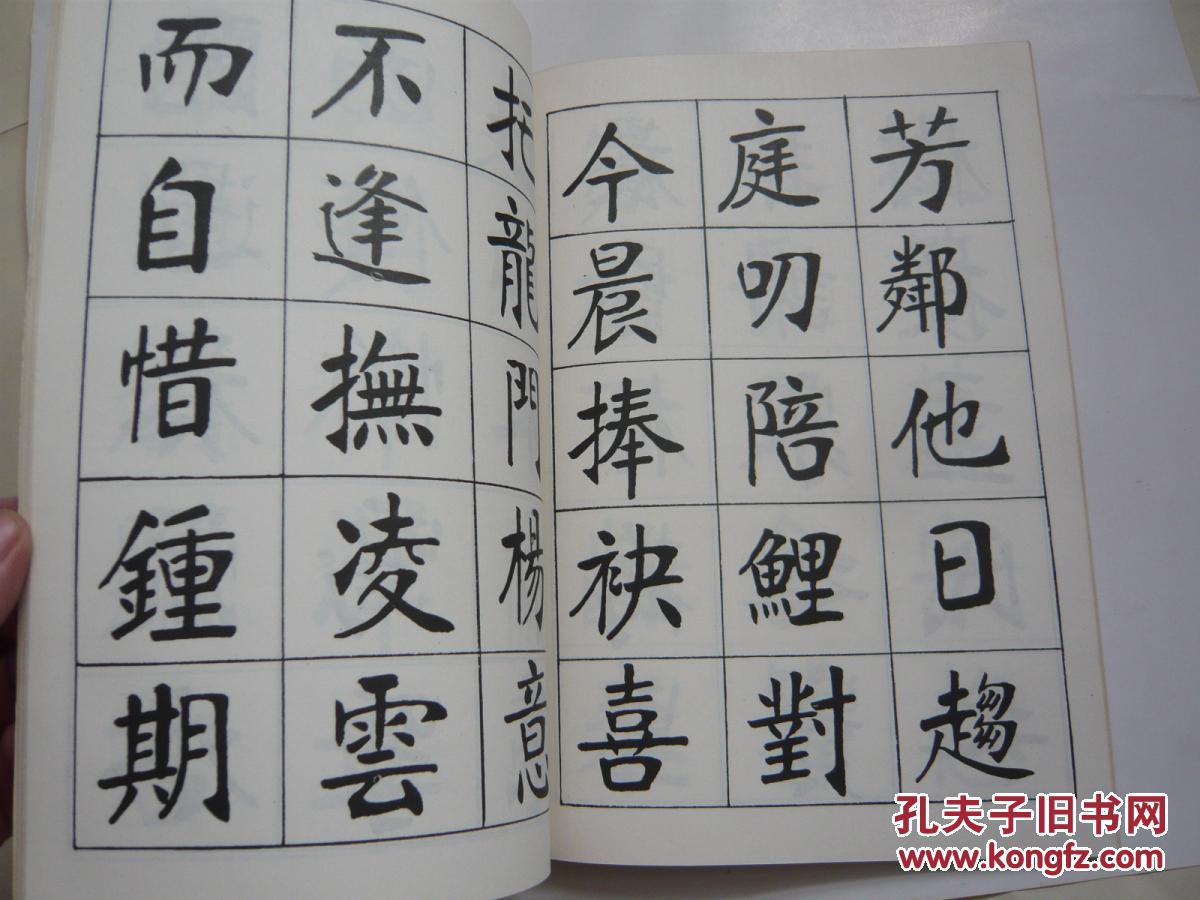 芳鄰他日趨
庭叨陪鯉對
今晨捧袂喜
托龍門楊意
不逢撫凌雲
而自惜鍾期
孔夫子旧书网
www.kongfz.com